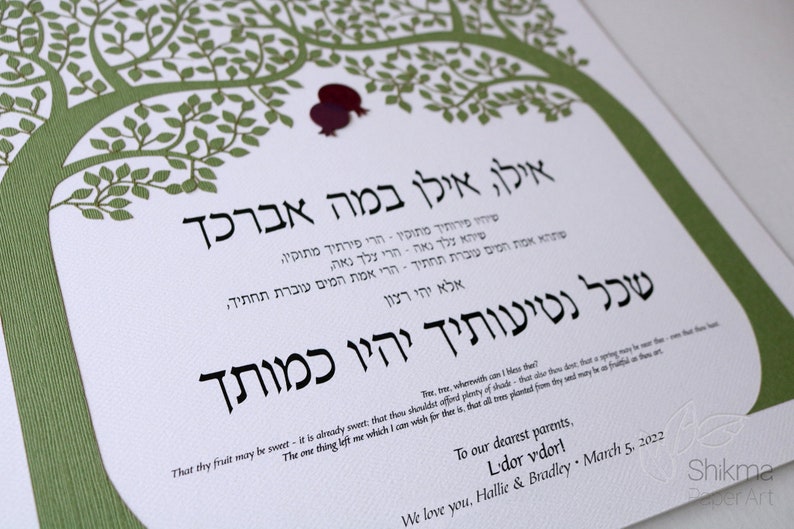 אילן, אילן במה אברכך
שיהיו פירותיך מתוקין - הרי פירתיך מתוקין,
שיהא צלך נאה - הרי צלך נאה,
שתהא אמת המים עוברת תחתיך - הרי אמת המים עוברת תחתיך,
אלא יהי רצון
שכל נטיעותיך יהיו כמותך
Tree, tree, wherewith can I bless thee?
That thy fruit may be sweet - it is already sweet; that thou shouldst afford plenty of shade - that also thou dost; that a spring may be near thee - even that thou hast.
The one thing left me which I can wish for thee is, that all trees planted from thy seed may be as fruitful as thou art.
To our dearest parents,
L'dor v'dor!
We love you, Hallie & Bradley • March 5, 2022
Shikma
Paper Art